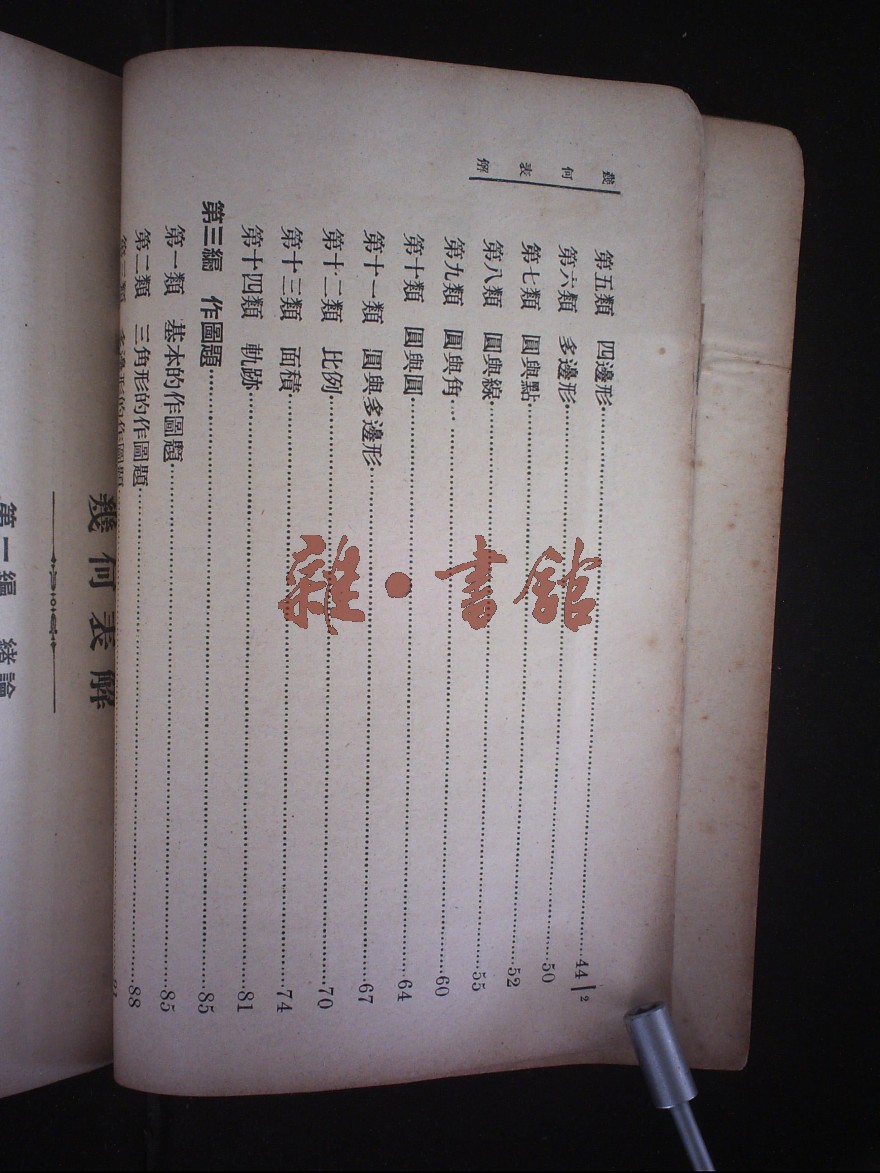 幾何表解
2
第五類 四邊形……44
第六類 多邊形……50
第七類 圓與點……52
第八類 圓與線……55
第九類 圓與角……60
第十類 圓與圓……64
第十一類 圓與多邊形……67
第十二類 比例……70
第十三類 面積……74
第十四類 軌跡……81
第三編 作圖題……85
第一類 基本的作圖題……85
第二類 三角形的作圖題……88
第三類 多邊形的作圖題
幾何表解
第一編 緒論
雜·書館